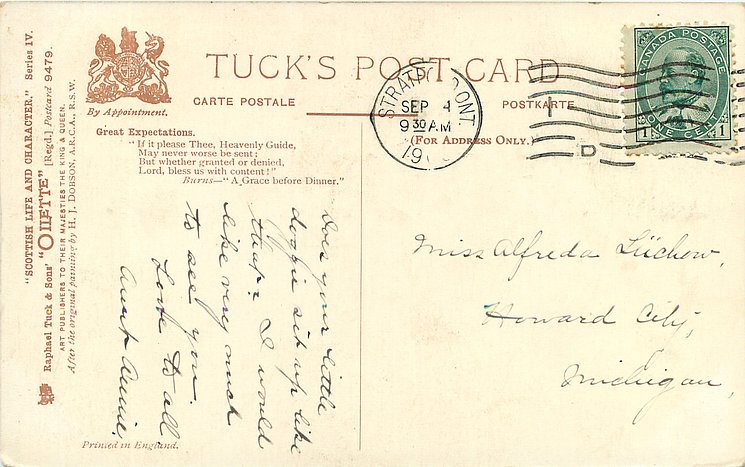 "SCOTTISH LIFE AND CHARACTER." Series IV.
Raphael Tuck & Sons' "OILETTE" [Regd.] Postcard 9479.
ART PUBLISHERS TO THEIR MAJESTIES THE KING & QUEEN.
After the original painting by H. J. DOBSON, A.R.C.A., R.S.W.
By Appointment.
TUCK'S POST CARD
CARTE POSTALE
POSTKARTE
(FOR ADDRESS ONLY.)
Great Expectations.
"If it please Thee, Heavenly Guide,
May never worse be sent;
But whether granted or denied,
Lord, bless us with content!"
Burns—"A Grace before Dinner."
STRATFORD ONT.
SEP 4
9 30 AM
19
D
CANADA POSTAGE
1 ONE CENT 1
Does your little
doggie sit up like
that? I would
like very much
to see you.
Love to all
Aunt Annie.
Miss Alfreda Lüchow,
Howard City,
Michigan,
Printed in England.